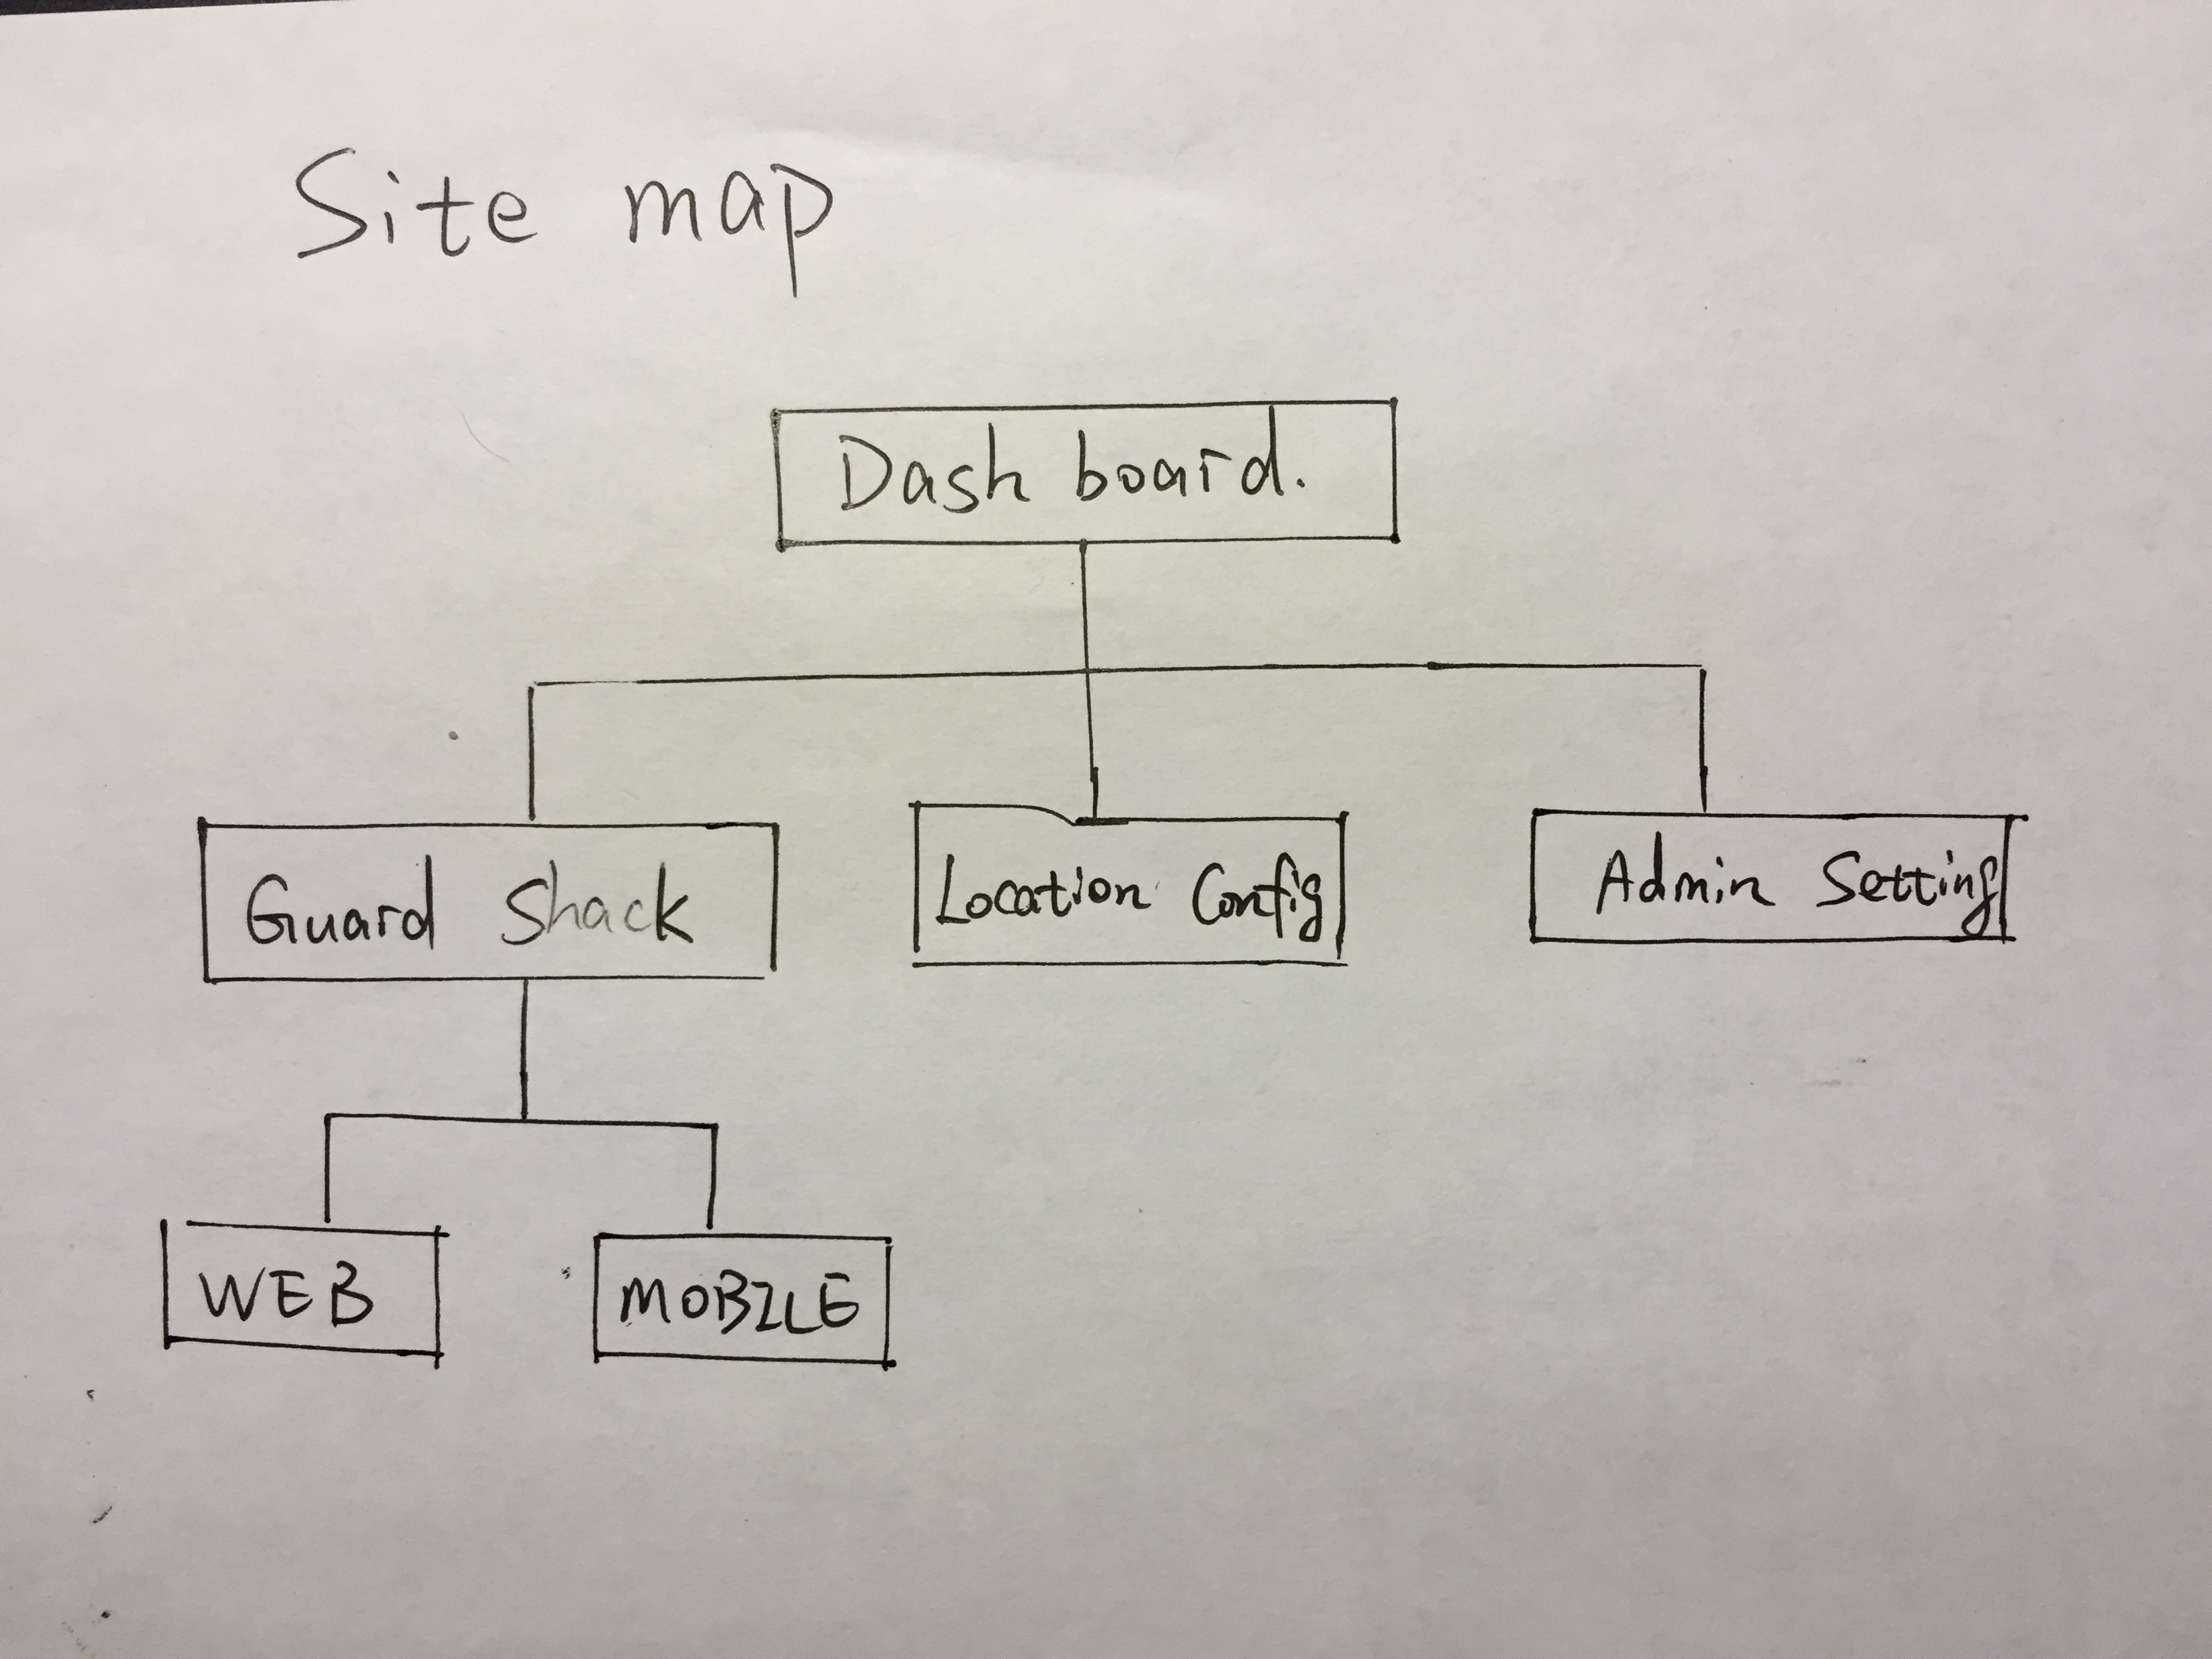 Site map
Dash board.
Guard Shack
Location Config
Admin Setting
WEB
MOBILE